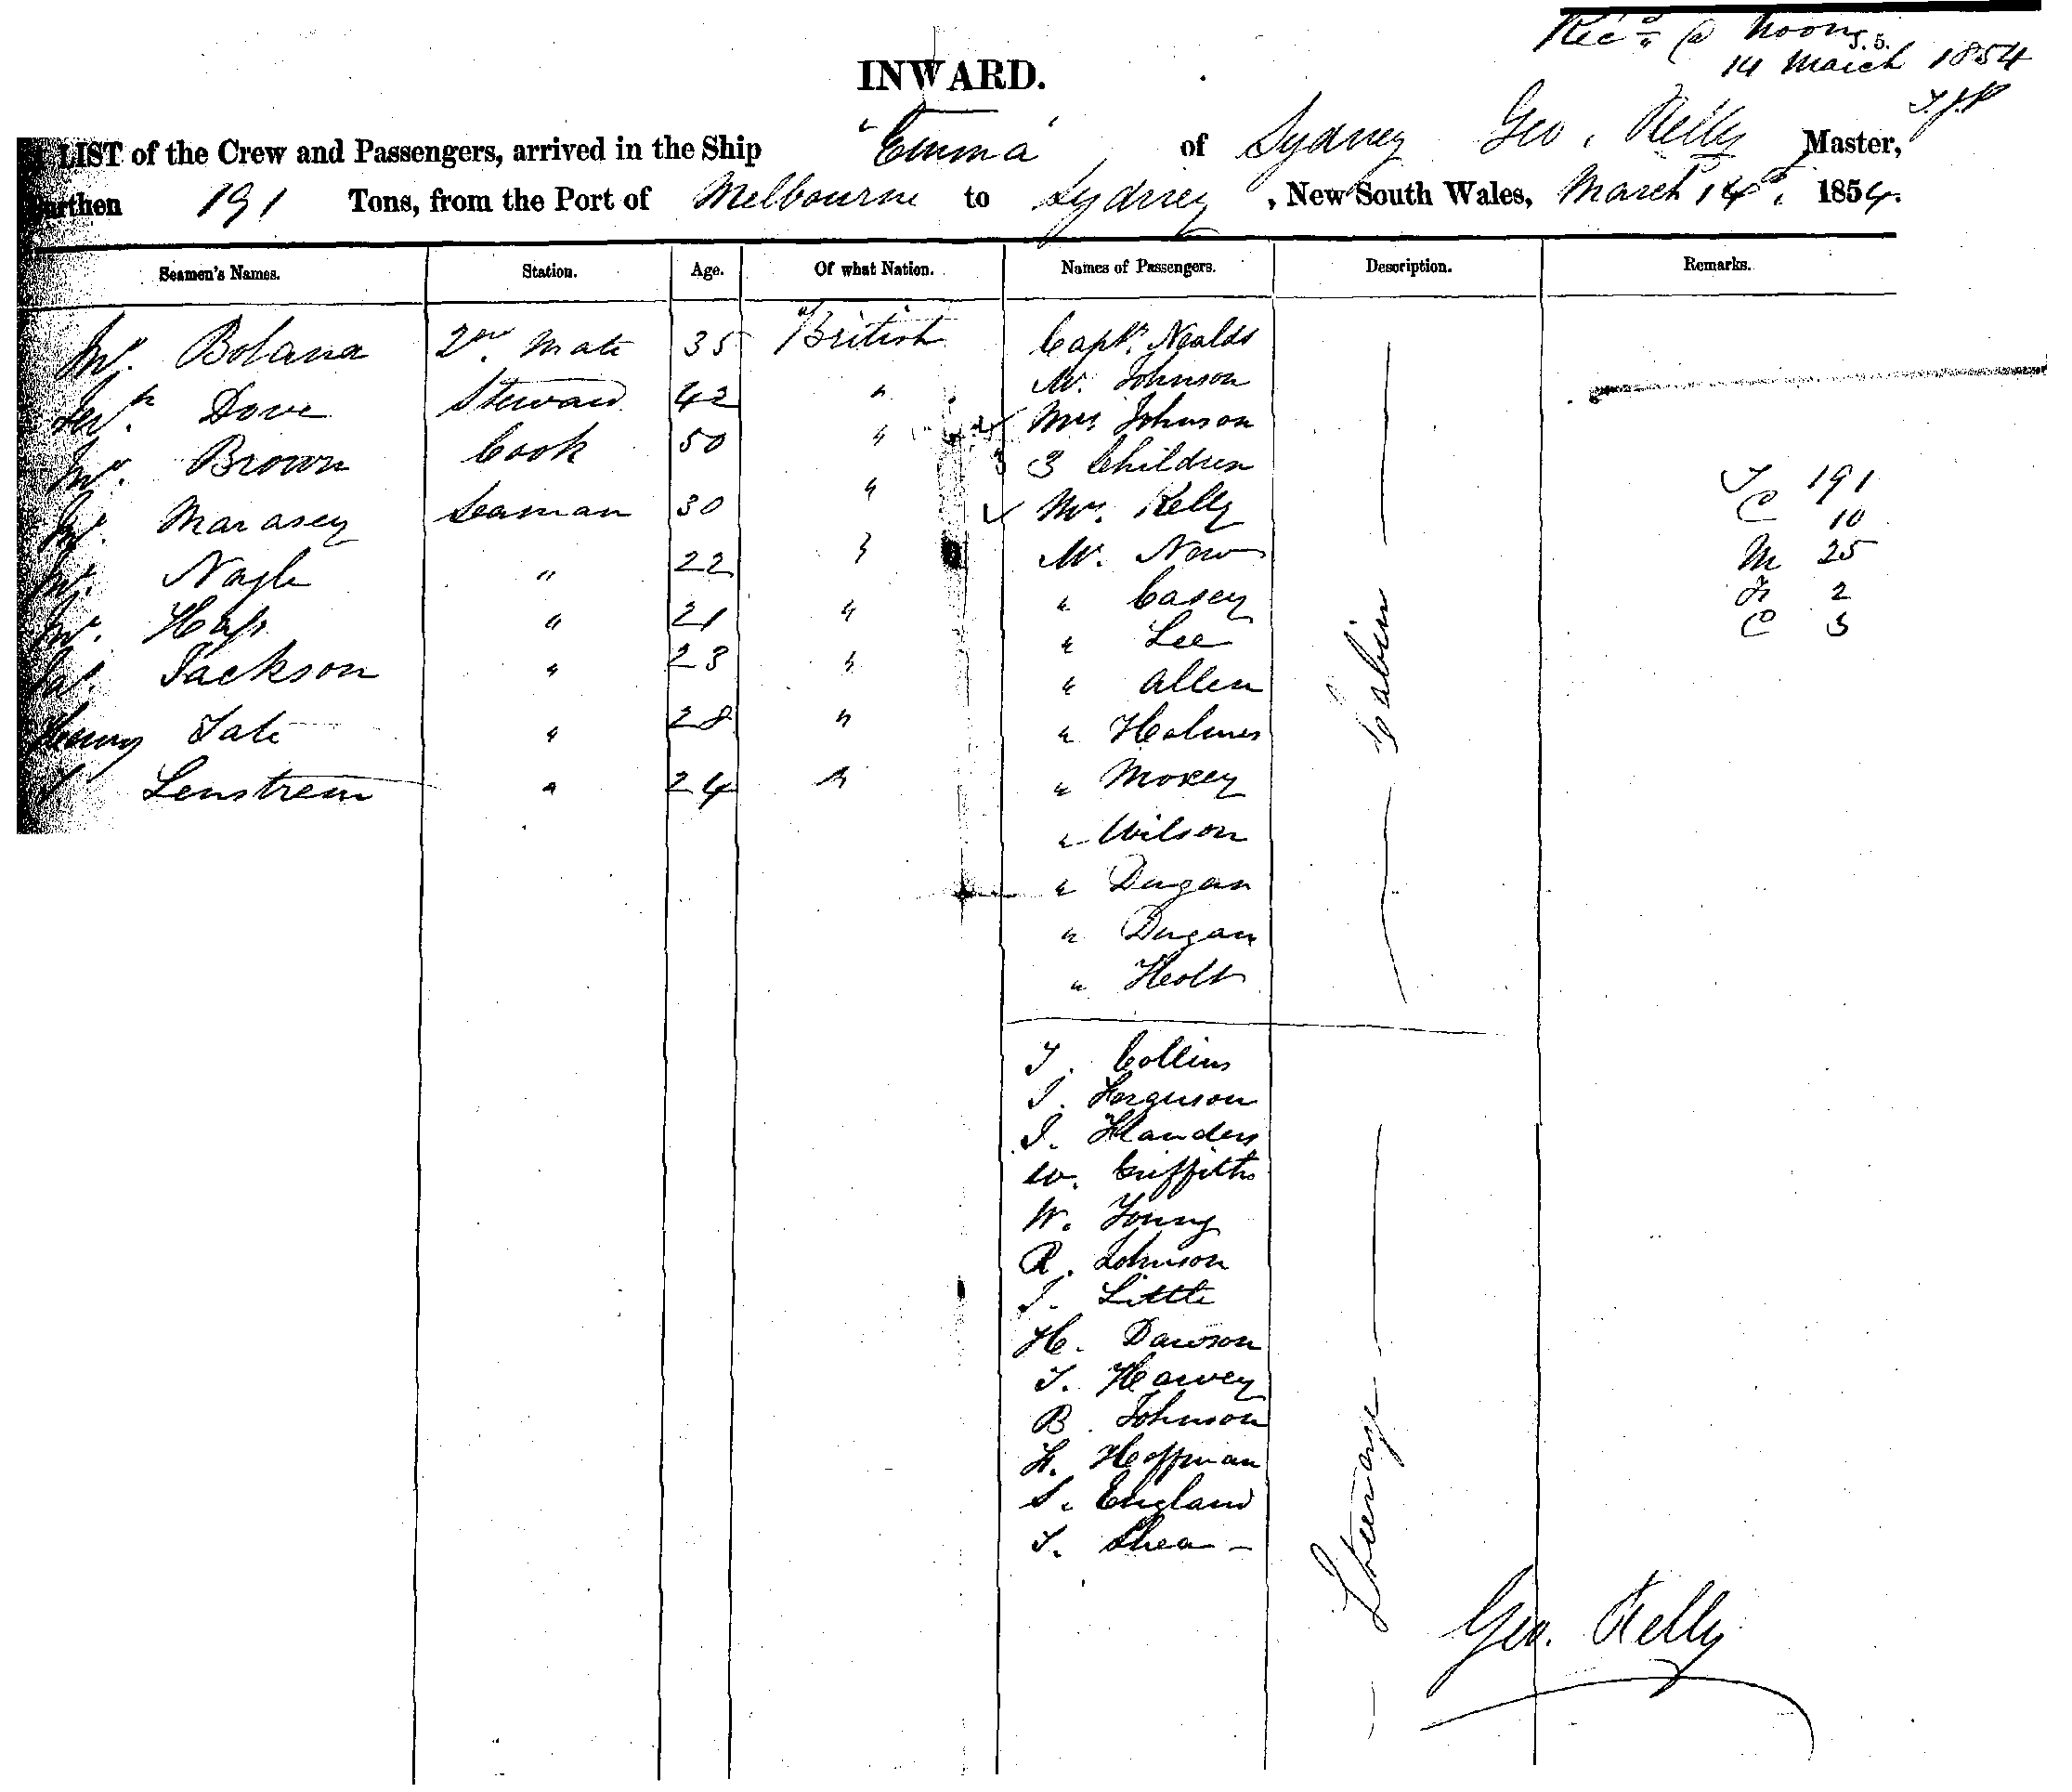 Rec'd @ Noon
14 March 1854
INWARD.
LIST of the Crew and Passengers, arrived in the Ship "Emma" of Sydney Geo. Kelly Master,
Burthen 191 Tons, from the Port of Melbourne to Sydney, New South Wales, March 14th. 1854.
Seamen's Names. Station. Age. Of what Nation. Names of Passengers. Description. Remarks.
Bolana 2nd. Mate 35 British Capt. Nealds
Dove Steward 42 " Mr. Johnson
Brown Cook 50 " Mrs Johnson
3 Children
Marasey Seaman 30 " Mrs. Kelly
Nagle " 22 " Mr. New
" 21 " " Casey
Jackson " 23 " " Lee
Henry Tate " 28 " " Allen
Lenstrem " 24 " " Holmes
" Morey
" Wilson
" Dugan
" Dugan
" Holt
Cabin
T 191
C 10
M 25
F 2
C 3
T. Collins
J. Ferguson
J. Flanders
W. Griffiths
W. Young
R. Johnson
J. Little
H. Dawson
T. Harvey
B. Johnson
F. Hoffman
S. England
T. Shea -
Steerage
Geo. Kelly